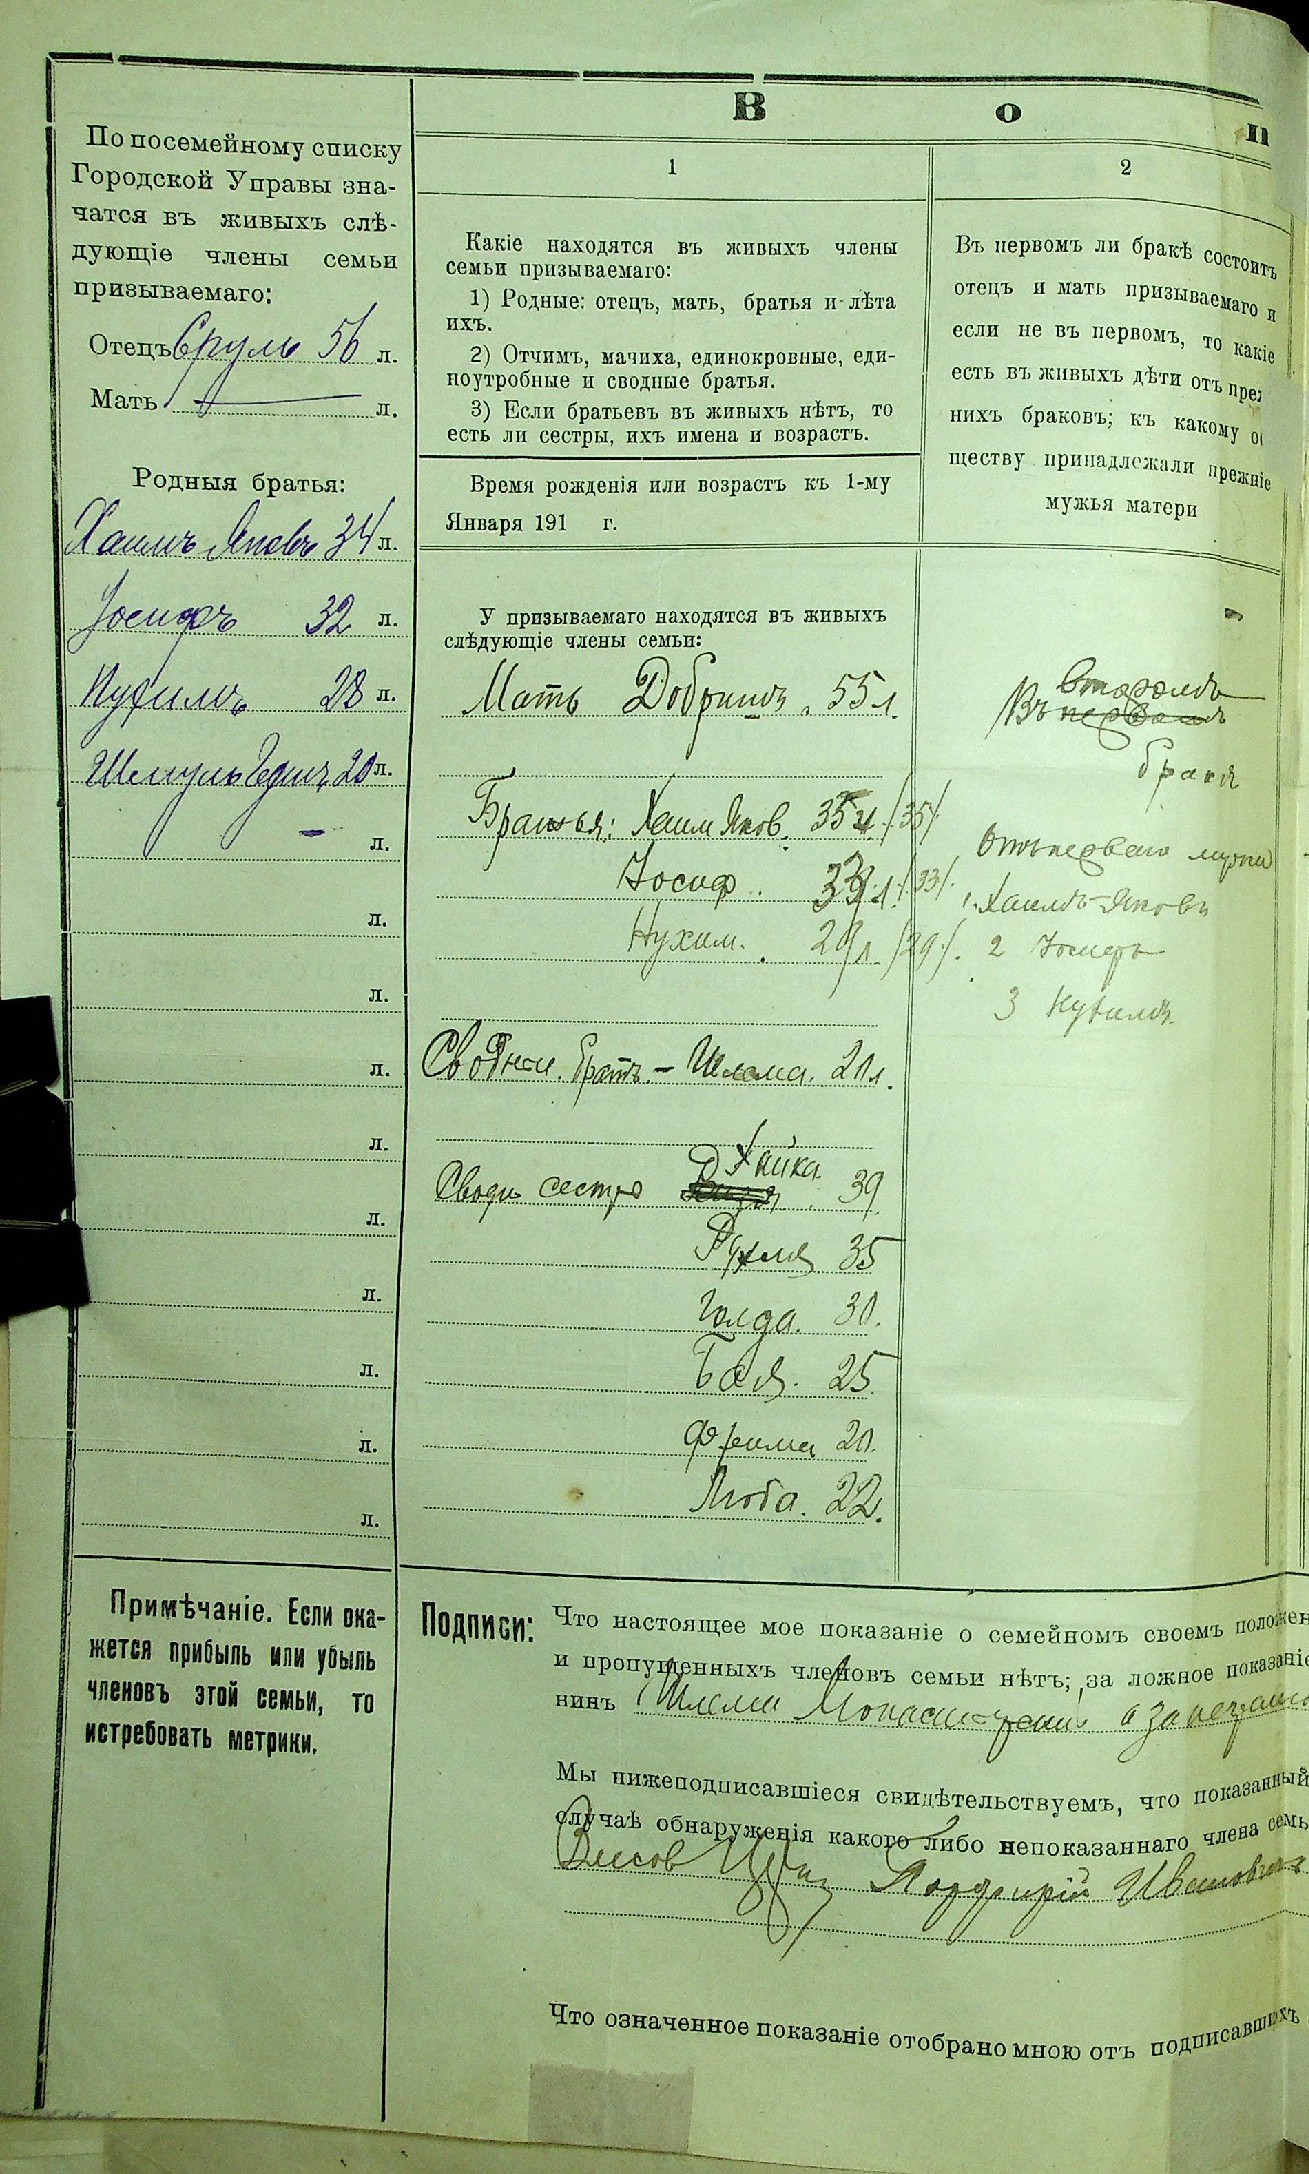 В о п
По посемейному списку
Городской Управы зна-
чатся въ живыхъ слѣ-
дующіе члены семьи
призываемаго:
Отецъ Сруль 56 л.
Мать — л.
Родныя братья:
Хаимъ Яковъ 34 л.
Іосифъ 32 л.
Нухимъ 28 л.
Шмуль 20 л.
— л.
л.
л.
л.
л.
л.
л.
л.
л.
л.
Примѣчаніе. Если ока-
жется прибыль или убыль
членовъ этой семьи, то
истребовать метрики.
1
Какіе находятся въ живыхъ члены
семьи призываемаго:
1) Родные: отецъ, мать, братья и лѣта
ихъ.
2) Отчимъ, мачиха, единокровные, еди-
ноутробные и сводные братья.
3) Если братьевъ въ живыхъ нѣтъ, то
есть ли сестры, ихъ имена и возрастъ.
Время рожденія или возрастъ къ 1-му
Января 191 г.
У призываемаго находятся въ живыхъ
слѣдующіе члены семьи:
Мать 55 л.
Братья: Хаим Яков. 35 л. /35/
Іосиф. 33 л. /33/.
Нухим. 29 л. /29/.
Сводн. братъ. – Шлома. 20 л.
Сводн сестра Хайка. 39
Рухля 35
Голда. 30.
Бася. 25.
Фрима 20.
Люба. 22.
2
Въ первомъ ли бракѣ состоитъ
отецъ и мать призываемаго и
если не въ первомъ, то какіе
есть въ живыхъ дѣти отъ преж
нихъ браковъ; къ какому об
ществу принадлежали прежніе
мужья матери
Второмъ
Въ первомъ
бракѣ
Отъ перваго мужа
1. Хаимъ-Яковъ
2 Іосифъ
3 Нухимъ
Подписи: Что настоящее мое показаніе о семейномъ своемъ положен
и пропущенныхъ членовъ семьи нѣтъ; за ложное показаніе
нинъ Шлема
Мы нижеподписавшіеся свидѣтельствуемъ, что показанный
случаѣ обнаруженія какого либо непоказаннаго члена семь
Порфирій
Что означенное показаніе отобрано мною отъ подписавшихъ